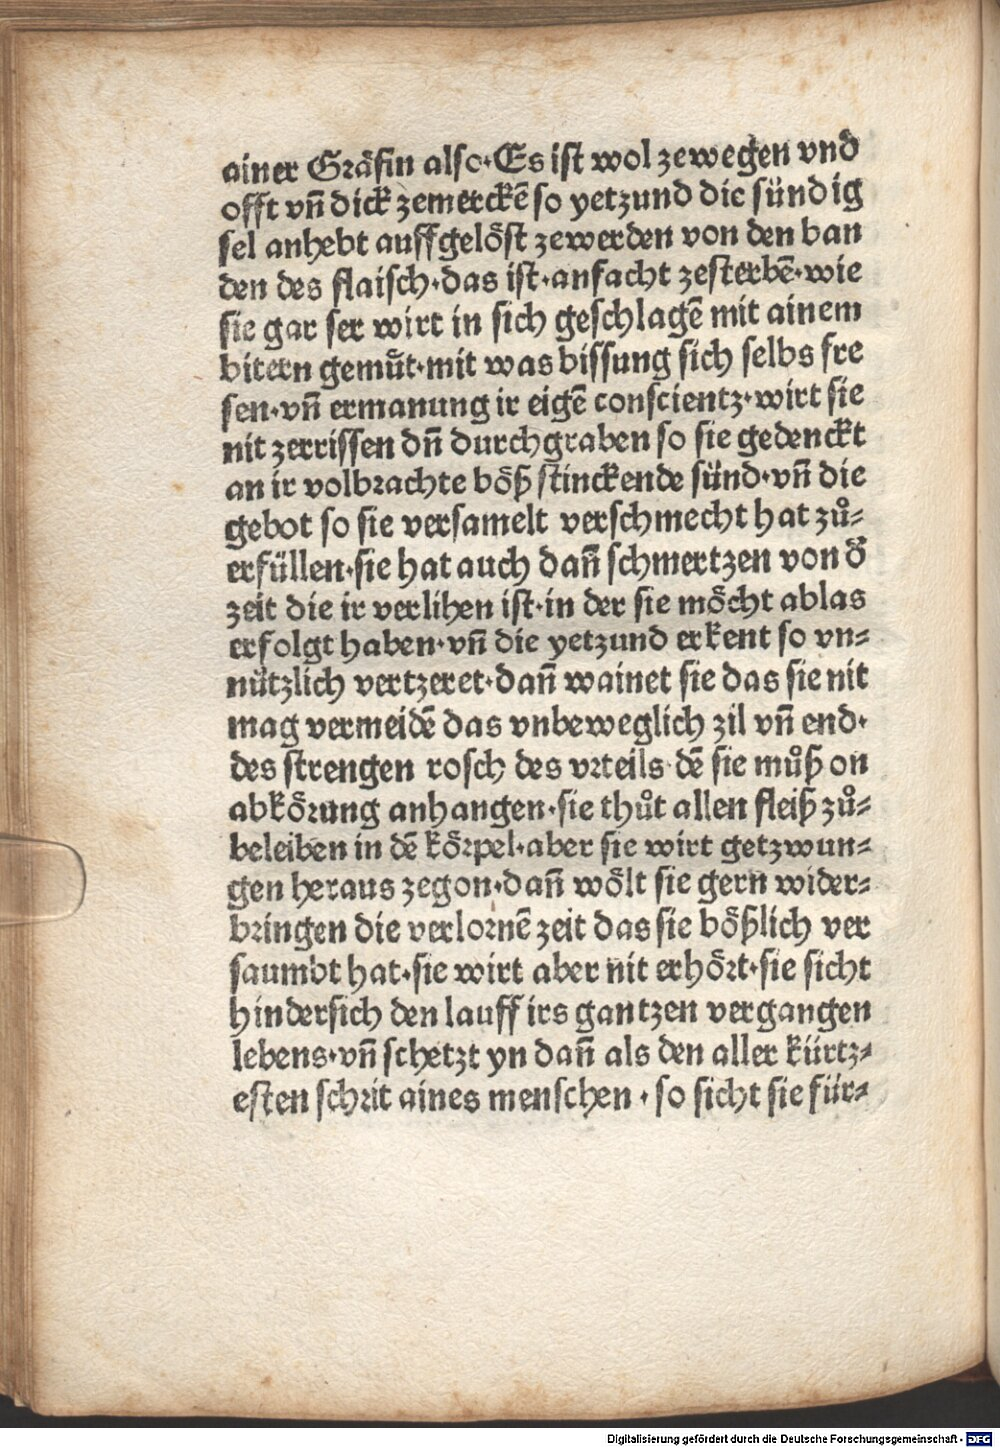 ainer Gräfin also·Es ist wol zewegen vnd
offt vñ dick zemerckē so yetzund die sündig
sel anhebt auffgelöst zewerden von den ban
den des flaisch·das ist·anfacht zesterbē·wie
sie gar ser wirt in sich geschlagē mit ainem
bitern gemuͤt·mit was bissung sich selbs fre
sen·vñ ermanung ir eigē conscientz·wirt sie
nit zerrissen dñ durchgraben so sie gedenckt
an ir volbrachte böß stinckende sünd·vñ die
gebot so sie versamelt verschmecht hat zů⸗
erfüllen·sie hat auch dañ schmertzen von d̄
zeit die ir verlihen ist·in der sie möcht ablas
erfolgt haben·vñ die yetzund erkent so vn⸗
nützlich vertzeret·dañ wainet sie das sie nit
mag vermeidē das vnbeweglich zil vñ end·
des strengen rosch des vrteils dē sie můß on
abkörung anhangen·sie thůt allen fleiß zů⸗
beleiben in dē körpel·aber sie wirt getzwun⸗
gen heraus zegon·dañ wölt sie gern wider⸗
bringen die verlornē zeit das sie bößlich ver
saumbt hat·sie wirt aber nit erhört·sie sicht
hindersich den lauff irs gantzen vergangen
lebens·vñ schetzt yn dañ als den aller kürtz⸗
esten schrit aines menschen · so sicht sie für⸗
Digitalisierung gefördert durch die Deutsche Forschungsgemeinschaft - DFG